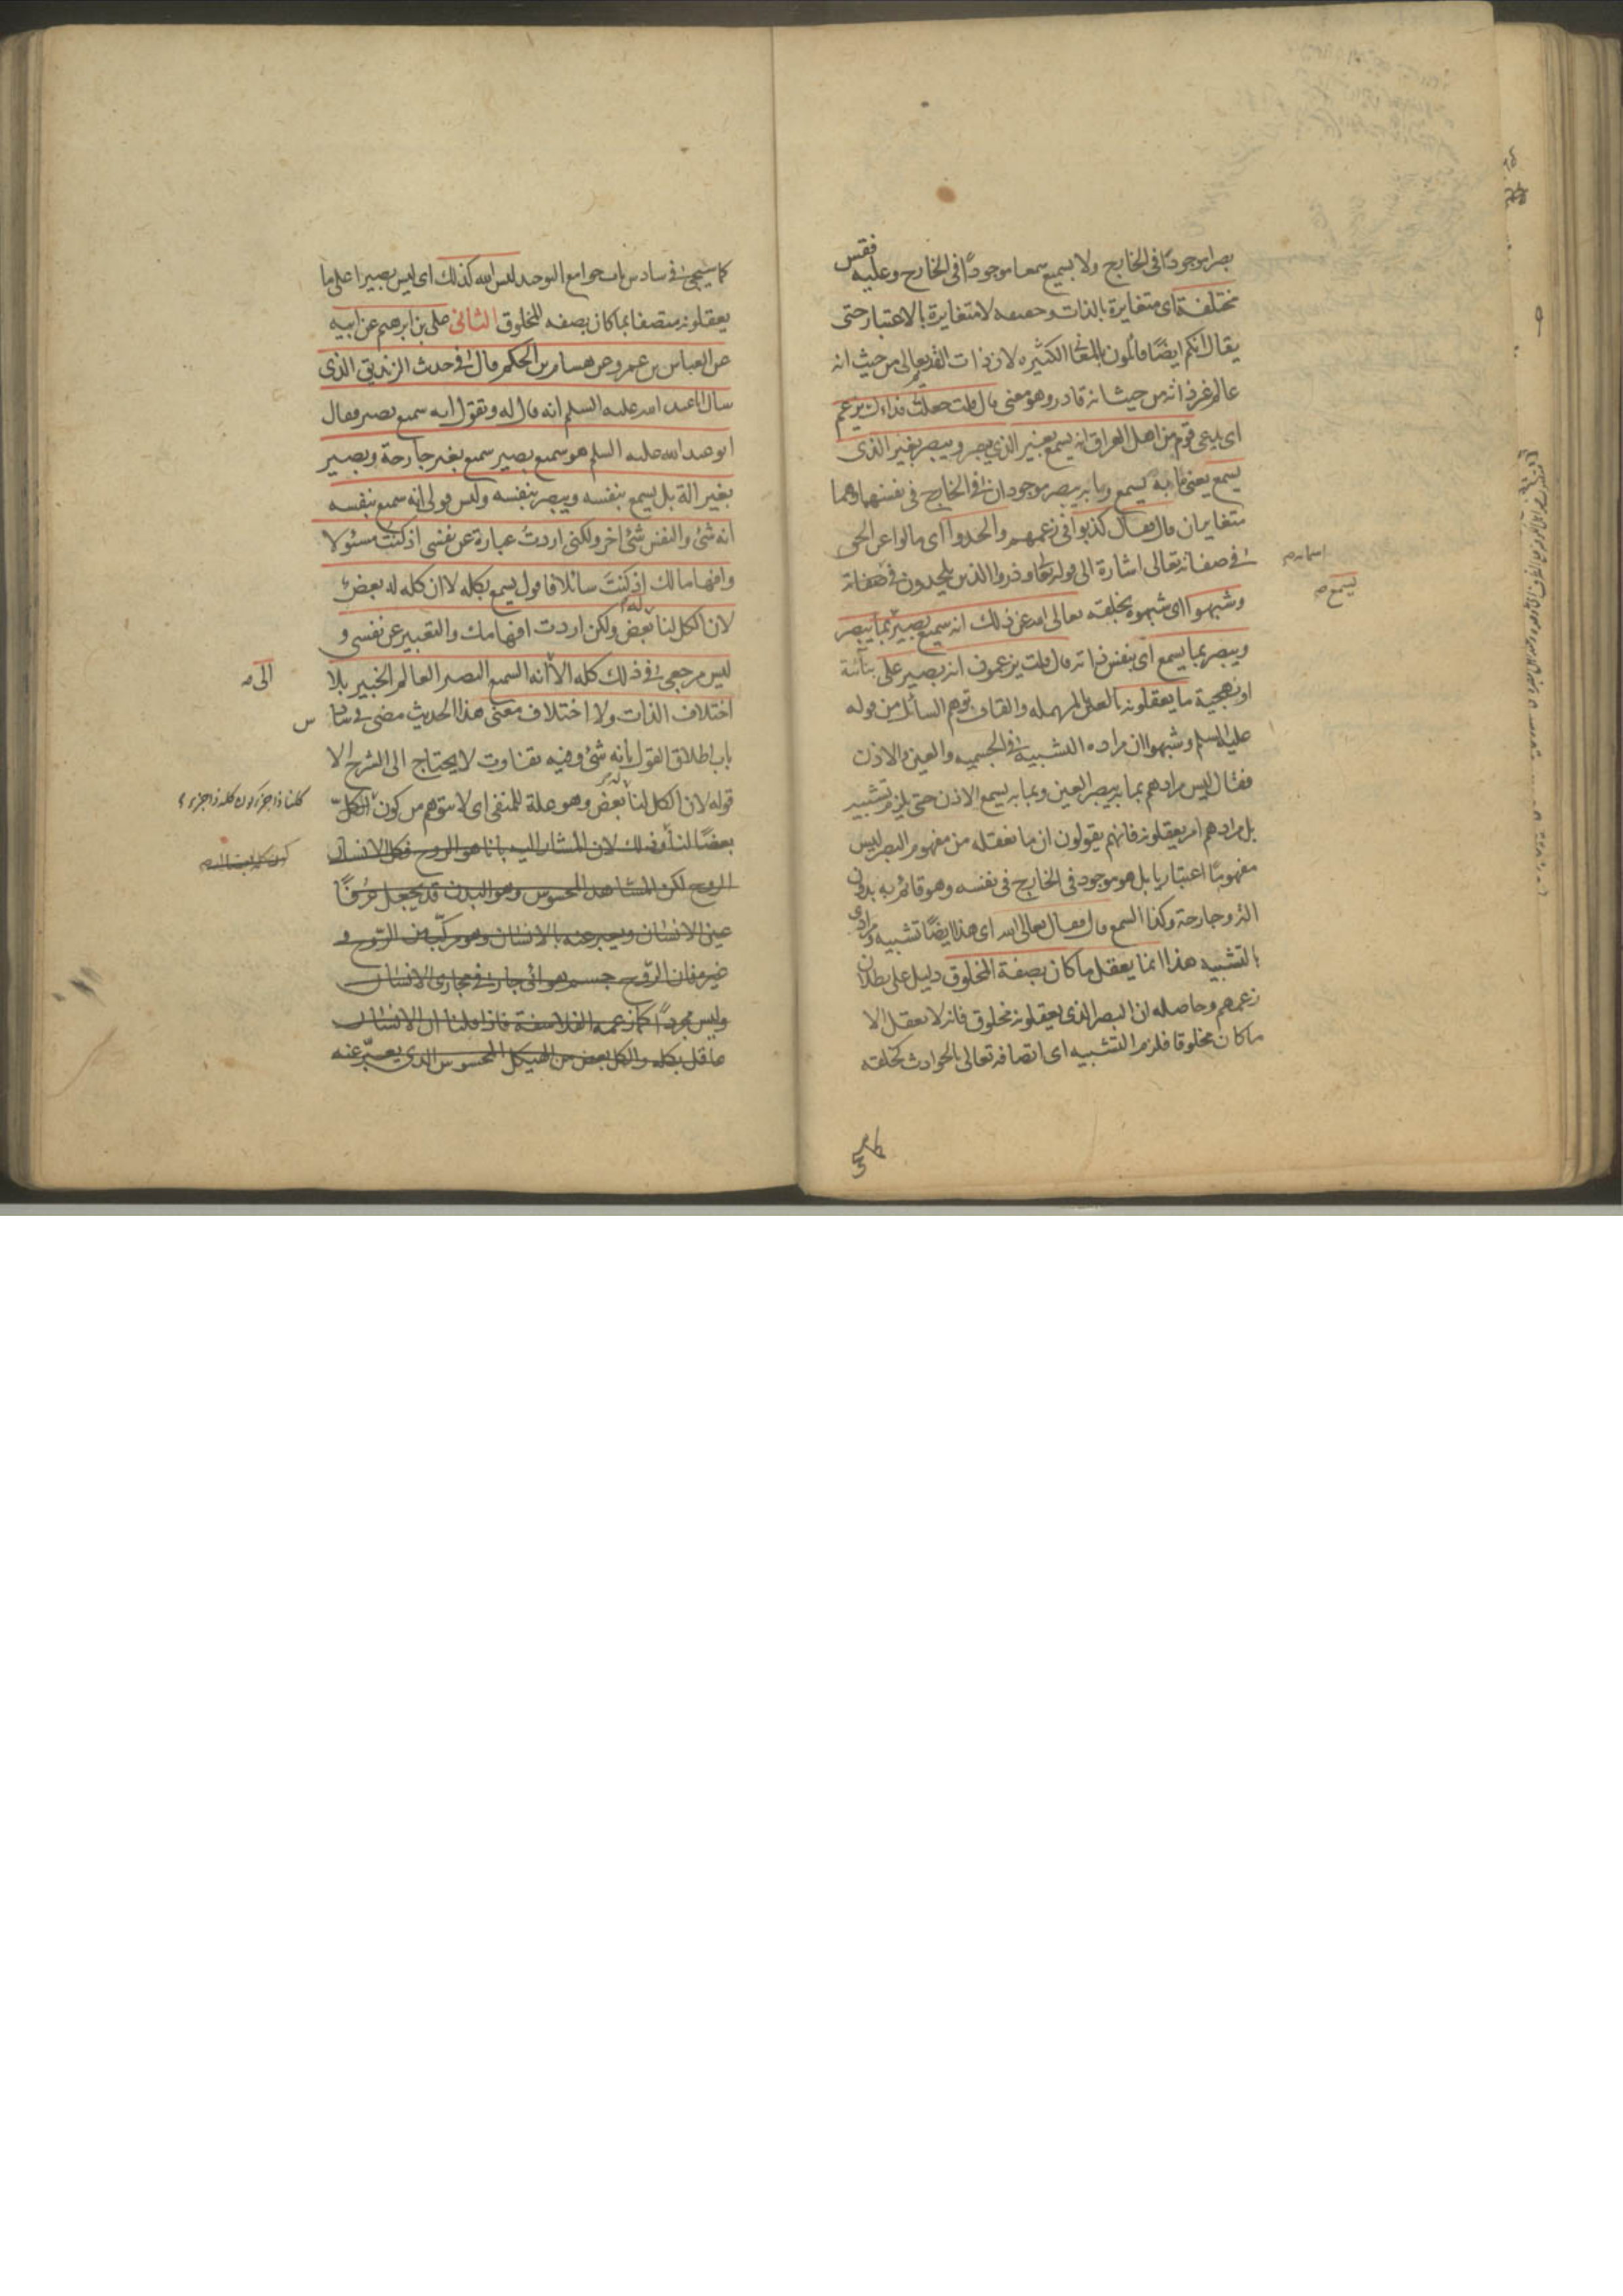 بصر موجودًا فى الخارج ولا بسمع سمعا موجودًا فى الخارج وعليه فقس
مختلفة اى متغايرة بالذات وحقيقه لا متغايرة بالاعتبار حتى
يقال انكم ايضًا قائلون بالمعانى الكثيره لان ذات القديم تعالى من حيث انه
عالم غير ذاته من حيث انه قادر وهو معنى قال قلت جعلت فداك يزعم
اى يدعى قوم من اهل العراق انه يسمع بغير الذي يبصر ويبصر بغير الذى
يسمع يعنى ما به يسمع وما به يبصر موجودان فى الخارج فى نفسهما وهما
متغايران قال فقال كذبوا فى زعمهم والحدوا اى مالوا عن الحق
فى صفاته تعالى اشارة الى قوله تعالى وذروا الذين يلحدون فى صفاته
اسمائه
وشبهوا اى شبهوه بخلقه تعالى الله عن ذلك انه سميع بصير بما يبصر
يسمع
ويبصر بما يسمع اى بنفس ذاته قال قلت يزعمون انه بصير على
ما يعقلونه بالعين المهمله والقاف توهم السائل من قوله
عليه السلم وشبهوا ان مراده التشبيه فى الجسميه والعين والاذن
فقال ليس مرادهم بما به يبصر العين وبما به يسمع الاذن حتى يلزم تشبيه
بل مرادهم امر يعقلونه فانهم يقولون ان ما نعقله من مفهوم البصر ليس
مفهومًا اعتباريا بل هو موجود فى الخارج فى نفسه وهو قائم به بدون
الة وجارحة وكذا السمع قال فقال تعالى الله اى هذا ايضًا تشبيه ومرادى
بالتشبيه هذا انما يعقل ما كان بصفة المخلوق دليل على بطلان
زعمهم وحاصله ان البصر الذى يعقلونه مخلوق فانه لا يعقل الا
ما كان مخلوقا فلزم التشبيه اى اتصافه تعالى بالحوادث كخلقه
كما سيجئ فى سادس باب جوامع التوحيد ليس الله كذلك اى ليس بصيرا على ما
يعقلونه متصفا بما كان بصفه المخلوق الثانى على بن ابرهيم عن ابيه
عن العباس بن عمرو عن هشام بن الحكم قال فى حديث الزنديق الذى
سال ابا عبد الله عليه السلم انه قال له وتقول انه سميع بصير فقال
ابو عبد الله عليه السلم هو سميع بصير سميع بغير جارحة وبصير
بغير الة بل يسمع بنفسه ويبصر بنفسه وليس قولى انه سميع بنفسه
انه شئ والنفس شئ اخر ولكنى اردت عبارة عن نفسى اذ كنت مسئولا
وافهاما لك اذ كنتَ سائلا فاقول يسمع بكله لا ان كله له بعض
لان الكل لنا له بعض ولكن اردت افهامك والتعبير عن نفسى و
ليس مرجعى فى ذلك كله الا انه السميع البصير العالم الخبير بلا
الى
اختلاف الذات ولا اختلاف معنى هذا الحديث مضى فى سادس
باب اطلاق القول بأنه شئ وفيه تفاوت لا يحتاج الى الشرح الا
قوله لان الكل لنا له بعض وهو علة للمنفى اى لا يتوهم من كون الكلّ
كلنا ذا جزء كون كله ذا جزء
بعضًا لنا وذلك لان المشار اليه بانا هو الروح فكل الانسان
الروح لكن المشاهد المحسوس وهو البدن قد يجعل عرفًا
عين الانسان ويعبر عنه بالانسان وهو مركّب من الرّوح و
غيره فان الرّوح جسم هوائى جار فى مجارى الانسان
وليس مجردًا كما زعمه الفلاسفة فاذا قلنا ان الانسان
عاقل بكله والكل بعض من الهيكل المحسوس الذى يعبّر عنه